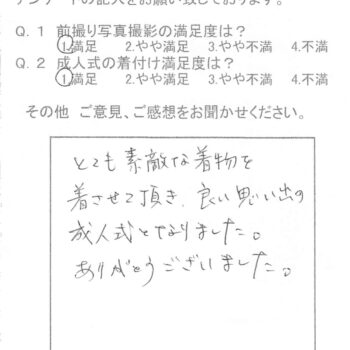 アンケートの記入をお願い致しております。
Q.1 前撮り写真撮影の満足度は？
1.満足 2.やや満足 3.やや不満 4.不満
Q.2 成人式の着付け満足度は？
1.満足 2.やや満足 3.やや不満 4.不満
その他 ご意見、ご感想をお聞かせください。
とても素敵な着物を
着させて頂き、良い思い出の
成人式となりました。
ありがとうございました。